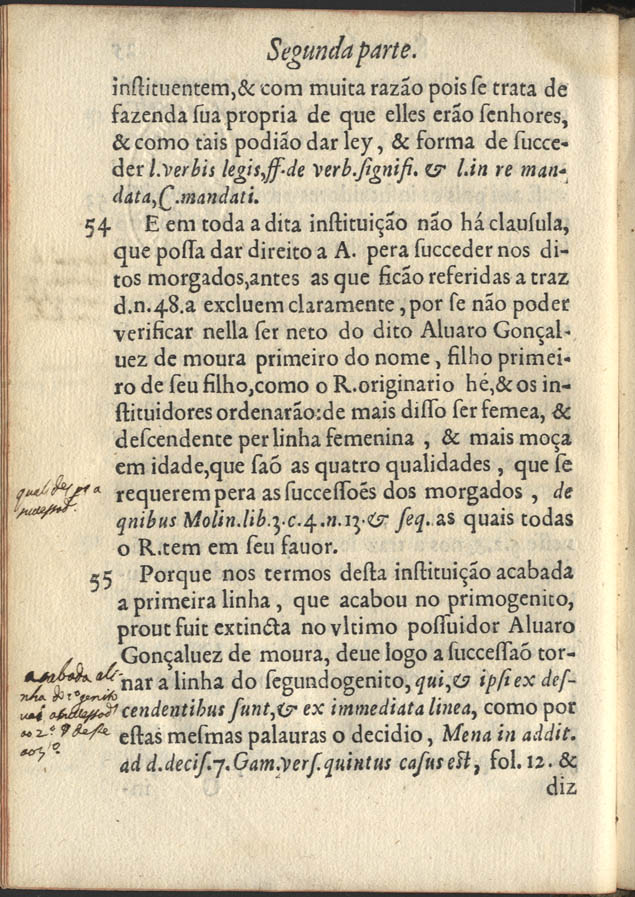 Segunda parte.
inſtituentem,& com muita razão pois ſe trata de
fazenda ſua propria de que elles erão ſenhores,
& como tais podião dar ley, & forma de ſucce-
der l.verbis legis,ff.de verb.ſignifi. & l.in re man-
data,C.mandati.
54 E em toda a dita inſtituição não há clauſula,
que poſſa dar direito a A. pera ſucceder nos di-
tos morgados,antes as que ficão referidas a traz
d.n.48.a excluem claramente, por ſe não poder
verificar nella ſer neto do dito Aluaro Gonçal-
uez de moura primeiro do nome, filho primei-
ro de ſeu filho,como o R.originario hé,& os in-
ſtituidores ordenarão:de mais diſſo ſer femea, &
deſcendente per linha femenina, & mais moça
em idade,que ſaõ as quatro qualidades, que ſe
requerem pera as ſucceſſoẽs dos morgados, de
qnibus Molin.lib.3.c.4.n.13.& ſeq. as quais todas
o R.tem em ſeu fauor.
55 Porque nos termos deſta inſtituição acabada
a primeira linha, que acabou no primogenito,
prout fuit extincta no vltimo poſſuidor Aluaro
Gonçaluez de moura, deue logo a ſucceſſaõ tor-
nar a linha do ſegundogenito, qui,& ipſi ex deſ-
cendentibus ſunt,& ex immediata linea, como por
eſtas meſmas palauras o decidio, Mena in addit.
ad d.deciſ.7.Gam.verſ.quintus caſus est, fol. 12. &
diz
acabada a li-
nha do 1º genito
ao 2º
ao 3º